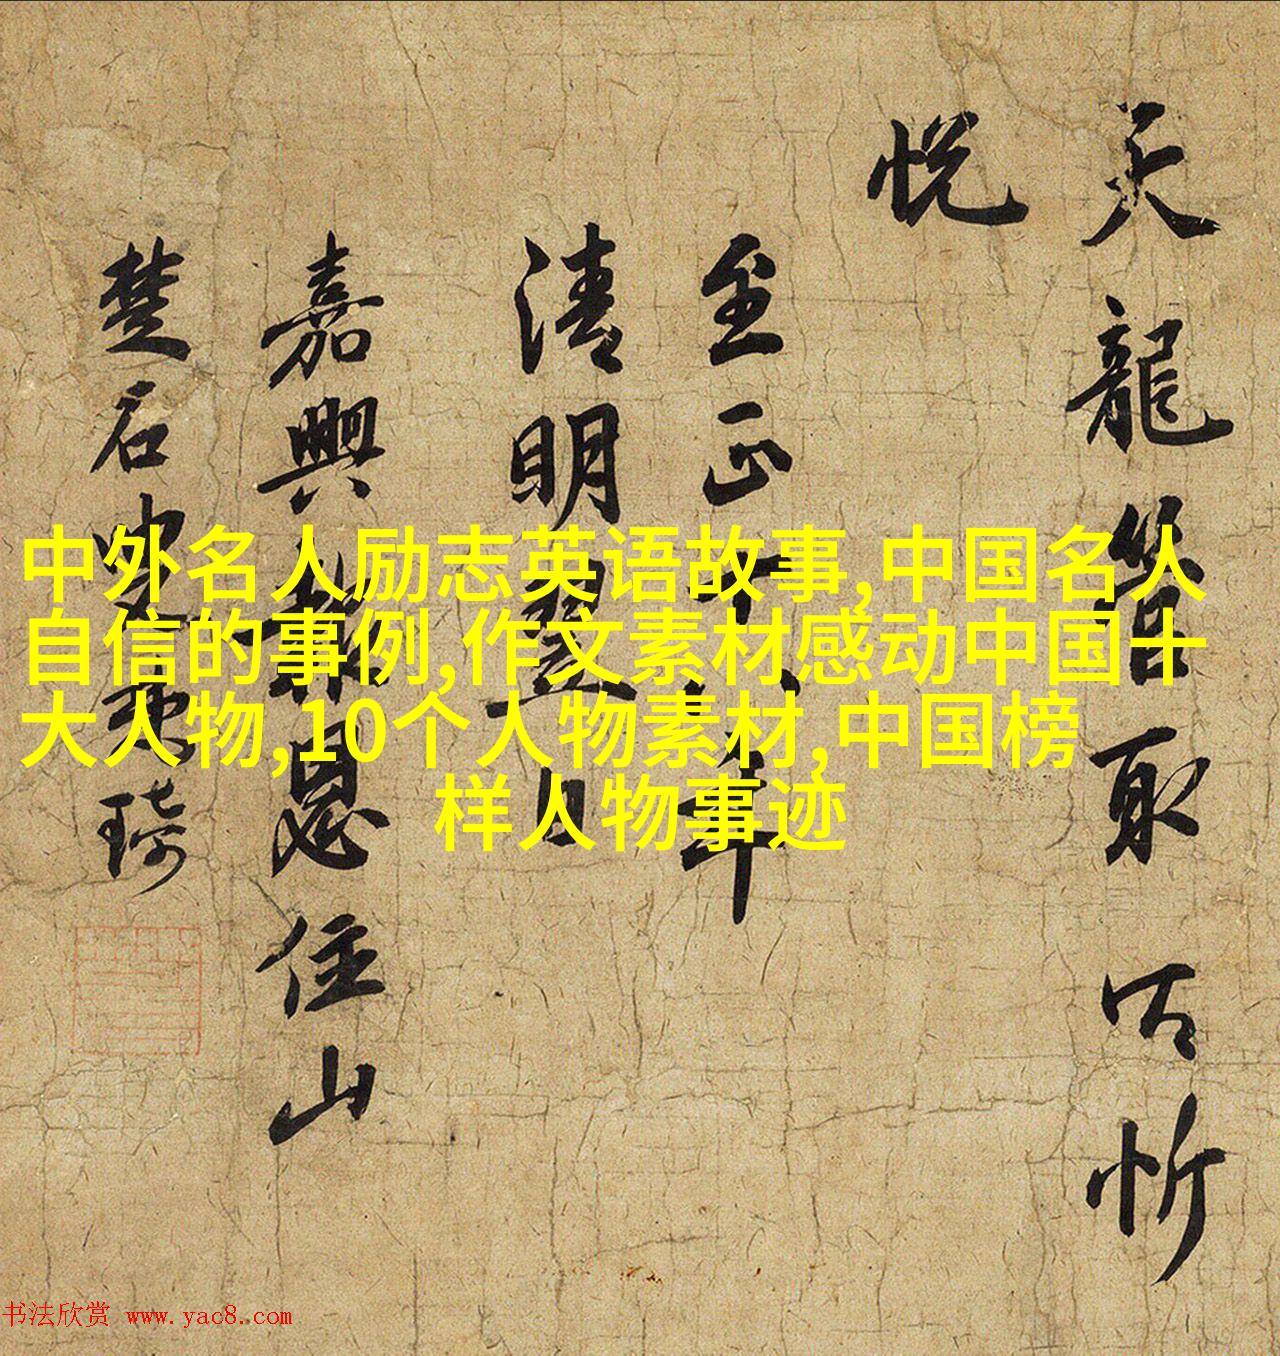 天龍皆取以忻
悦
至正十八年
清明翌日
嘉興報恩住山
楚石叟梵琦
中外名人励志英语故事,中国名人
自信的事例,作文素材感动中国十
大人物,10个人物素材,中国榜
样人物事迹
书法欣赏 www.yac8.com